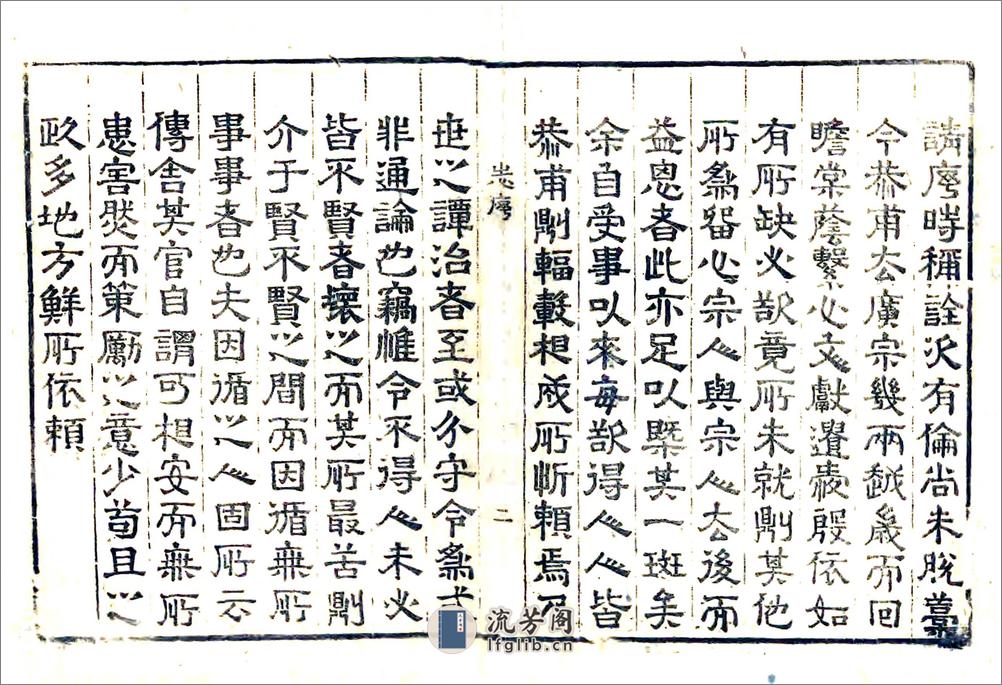 請序時稱詮次有倫尚未脫藁
今恭甫去廣宗幾兩越歲而回
瞻棠蔭繫心文獻遑遑殷依如
有所缺必欲竟所未就則其他
所為留心宗人與宗人去後而
益思者此亦足以槩其一斑矣
余自受事以來每欲得人人皆
恭甫則輻轂相成所忻賴焉乃
志序
二
世之譚治者至或分守令為
非通論也竊惟令不得人未必
皆不賢者壞之而其所最苦則
介于賢不賢之間而因循無所
事事者也夫因循之人固所云
傳舍其官自謂可相安而無所
患害然而策勵之意少苟且之
政多地方鮮所依賴
流芳阁
lfglib.cn